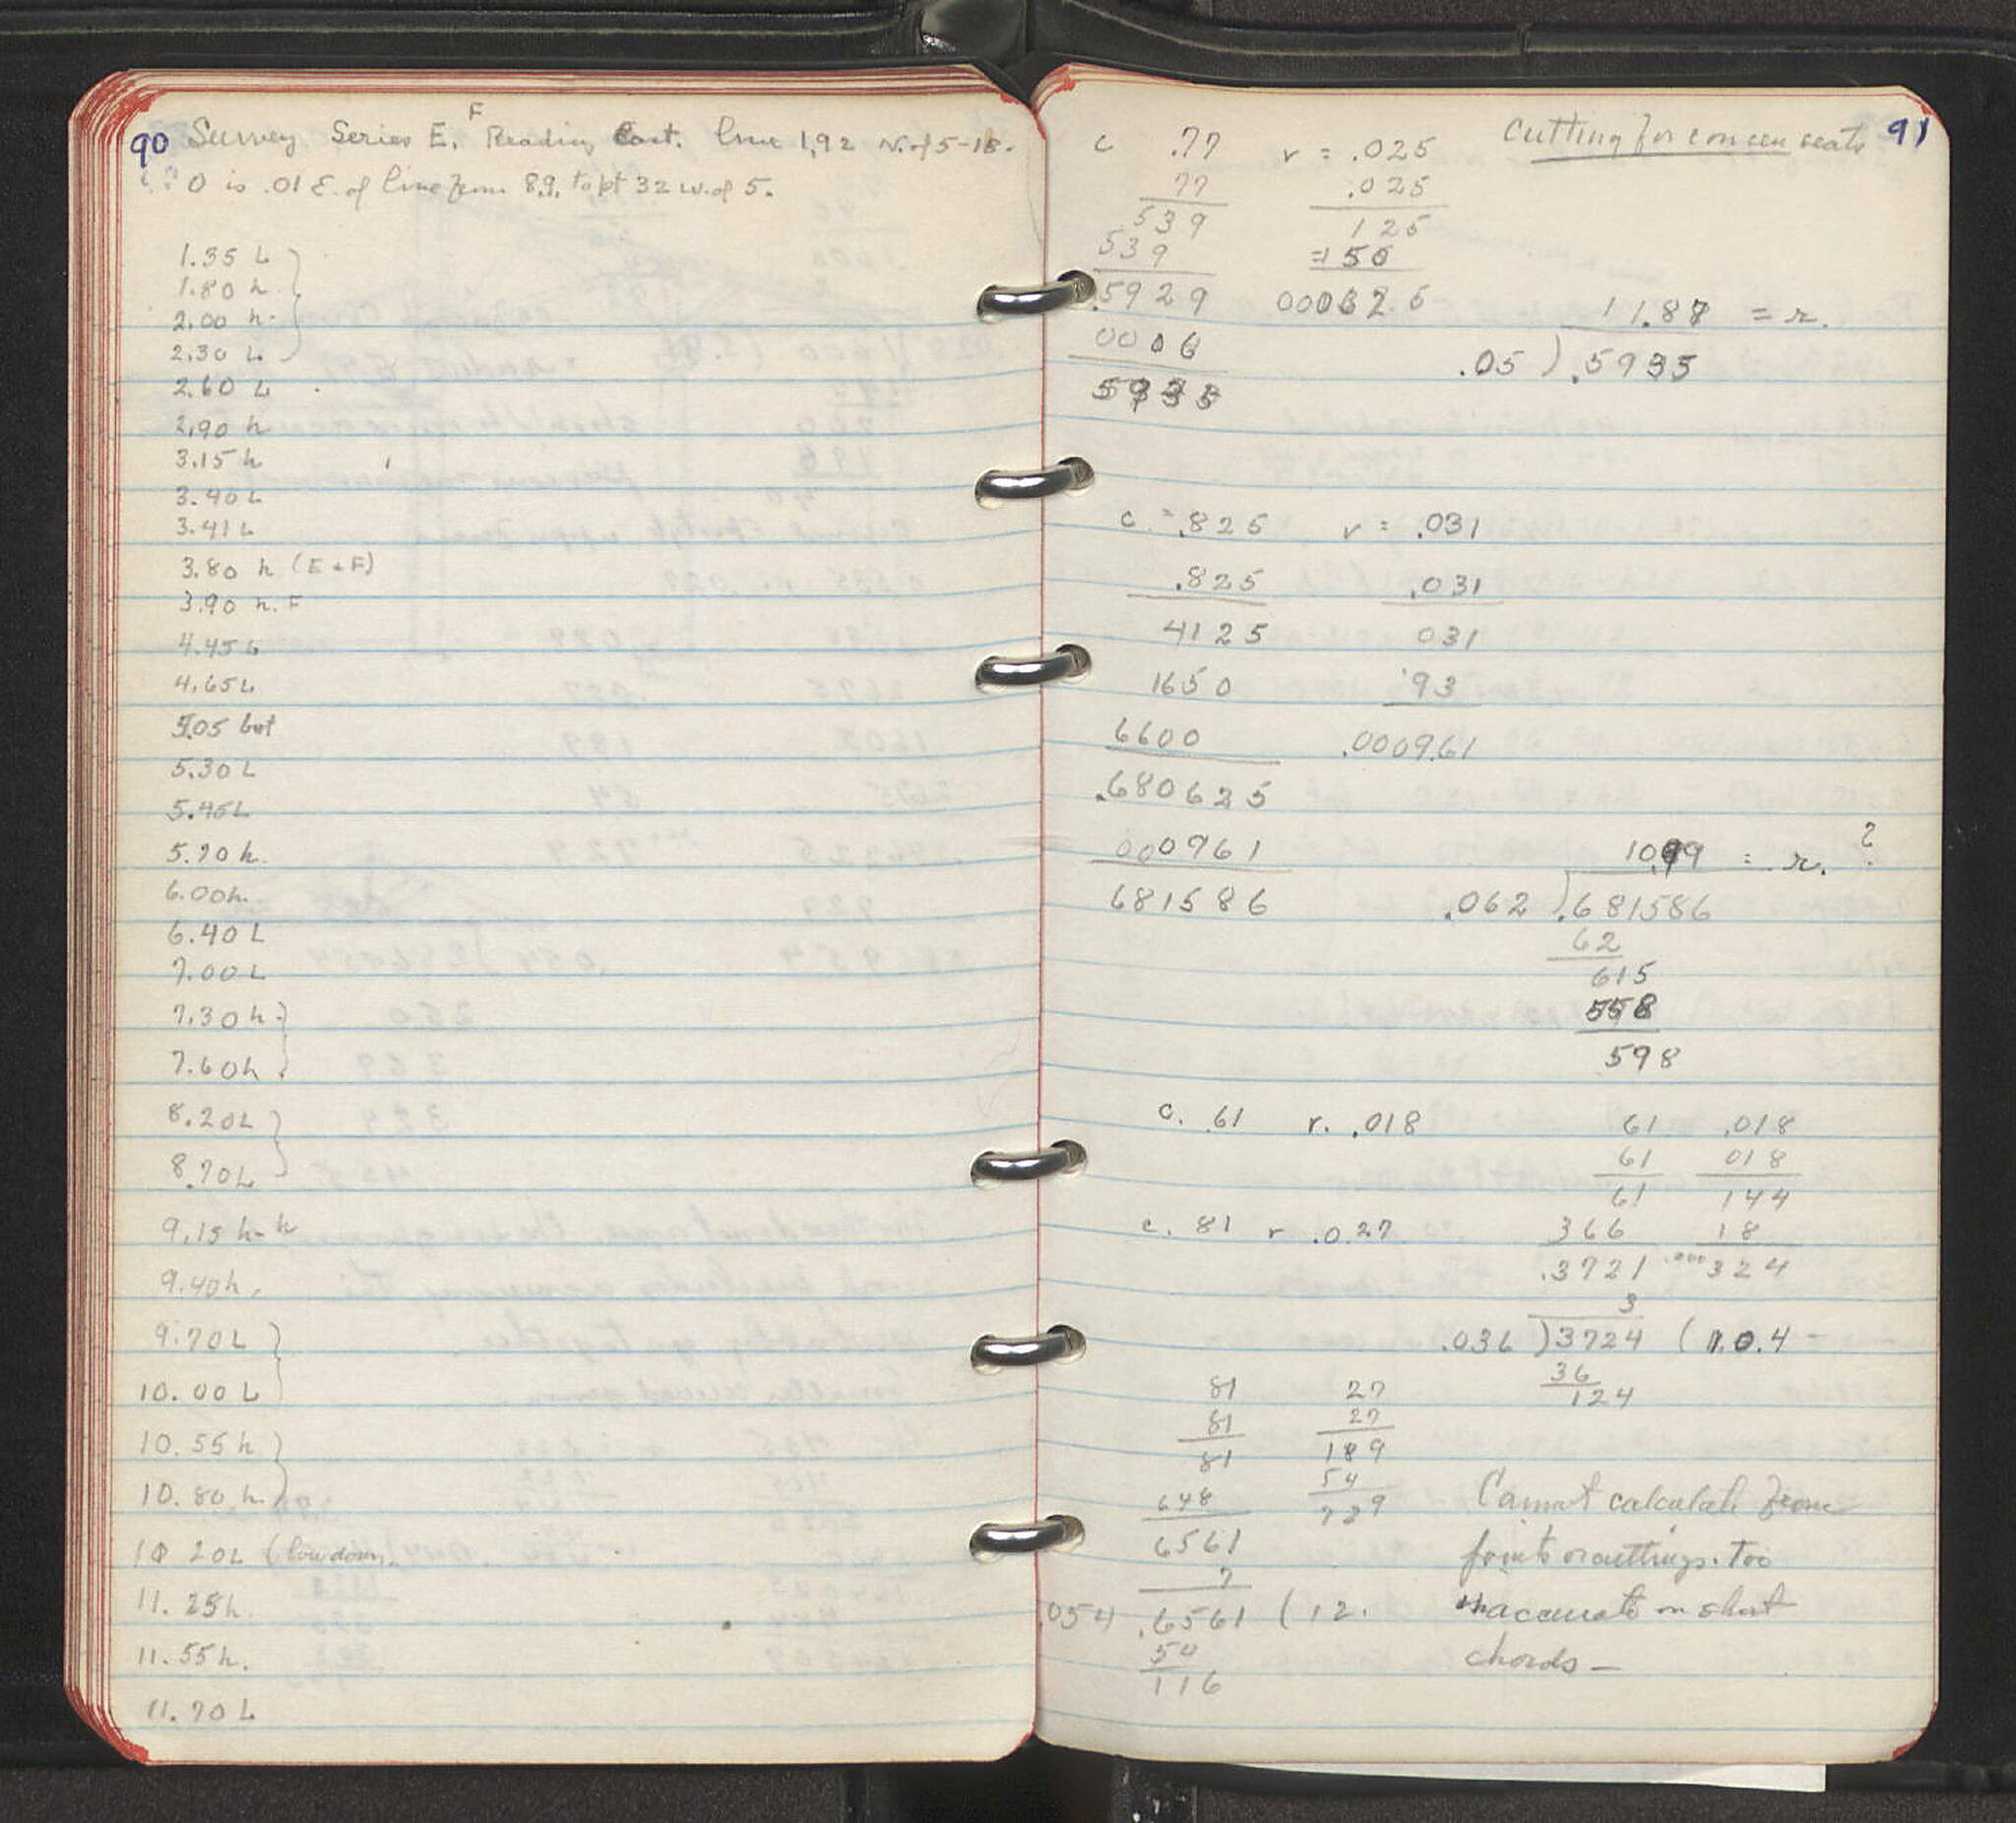 90 Survey Series E, F Reading East. line 1,92 N. of 5-18.
0 is .01 E. of line from 8,9, to pt 32 w. of 5.
1.35 L
1.80 h
2.00 h.
2.30 L
2.60 L
2.90 h
3.15 h
3.40 L
3.41 L
3.80 h (E + F)
3.90 h. F
4.45 L
4.65 L
5.05 but
5.30 L
5.45 L
5.70 h.
6.00 h.
6.40 L
7.00 L
7.30 h
7.60 h
8.20 L
8.70 L
9.15 h-h
9.40 h.
9.70 L
10.00 L
10.55 h
10.80 h.
10 20 L (low down.
11.25 h.
11.55 h.
11.70 L
Cutting for seats 91
c .77 v = .025
77 .025
539 125
539 50
.5929 000625
0006
5935
11.87 = r.
.05 ) .5935
c = .825 v = .031
.825 .031
4125 031
1650 93
6600 .000961
.680625
000961
681586
10.99 = r. ?
.062 ) .681586
62
615
558
598
c. .61 r. .018 61 .018
61 018
61 144
c. 81 r .027 366 18
.3721 .000324
3
.036 ) 3724 ( 10.4 -
36
124
81 27
81 27
81 189
648 54
6561 729
7
.054 .6561 ( 12.
54
116
Cannot calculate from
points or cuttings. Too
inaccurate on short
chords —